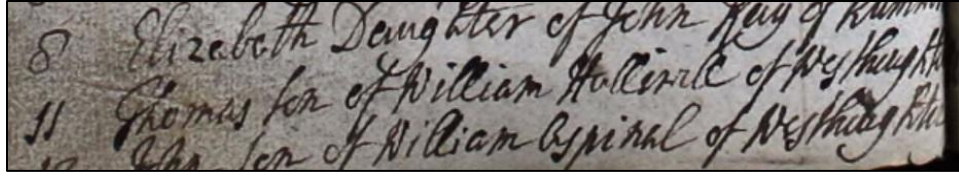 8 Elizabeth Daughter of John Kay of Rumw
11 Thomas Son of William Halliwell of Westhaught
John Son of William Aspinal of Westhaught